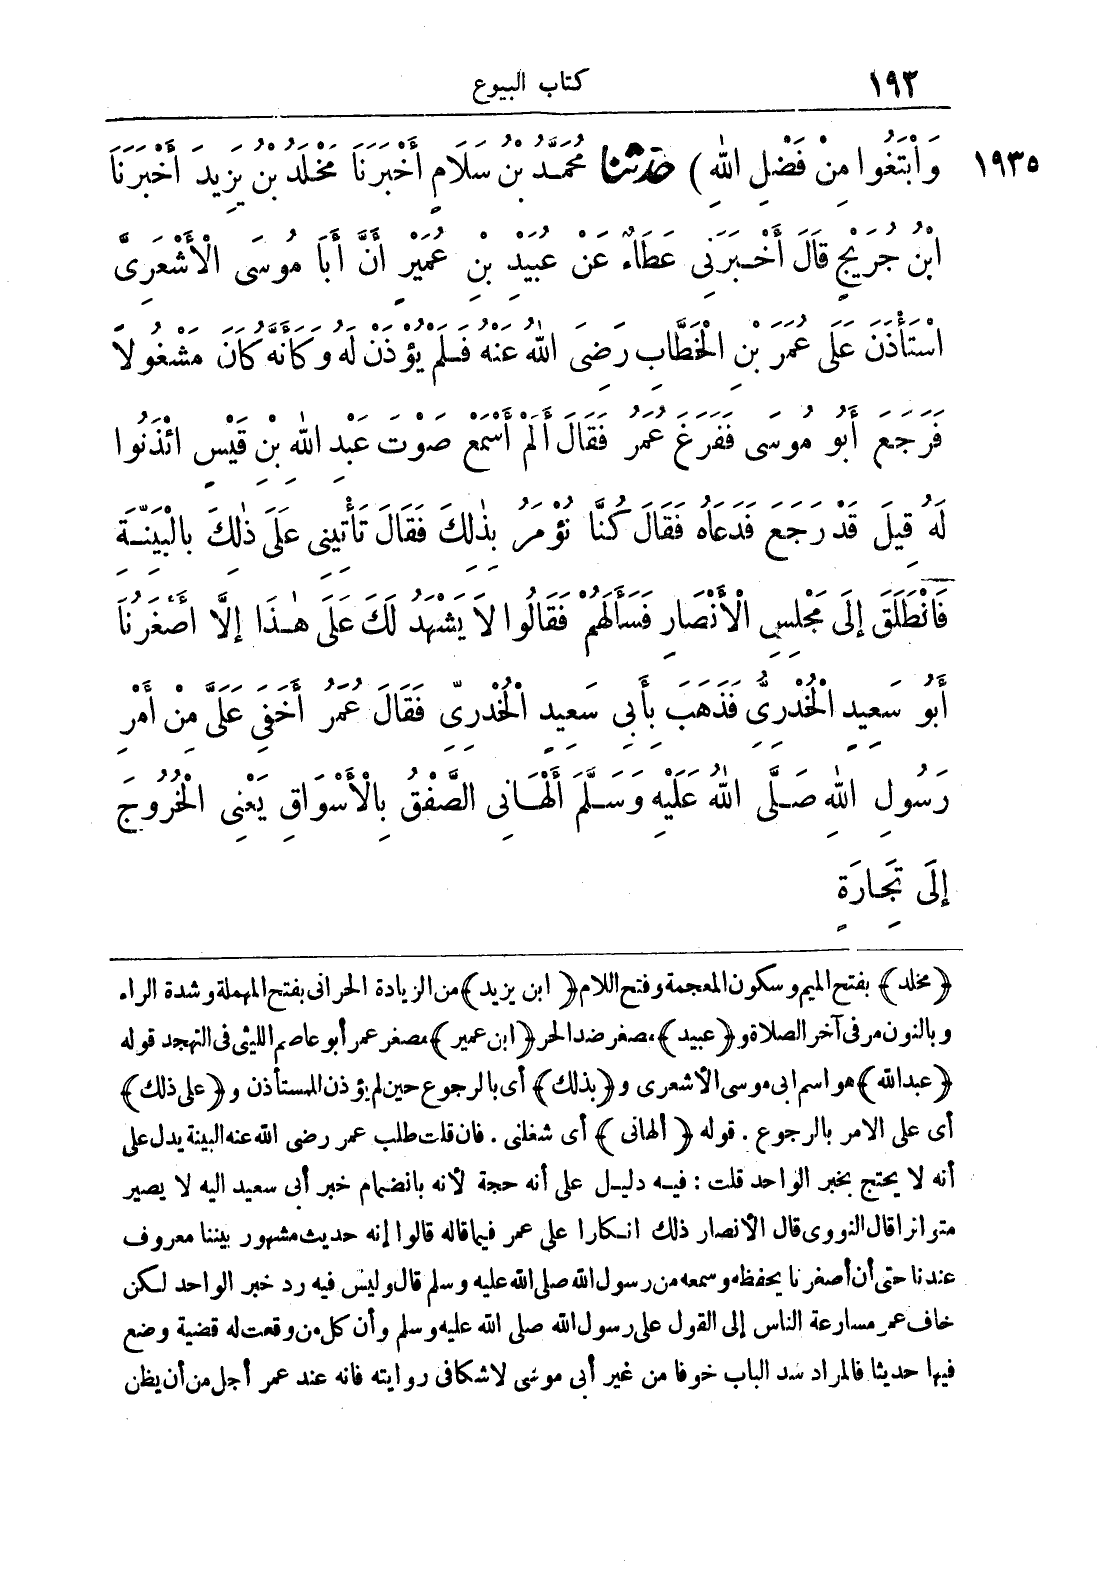 ١٩٣ كتاب البيوع
١٩٣٥ وَابْتَغُوا مِنْ فَضْلِ اللهِ) حدثنا مُحَمَّدُ بْنُ سَلَامٍ أَخْبَرَنَا مَخْلَدُ بْنُ يَزِيدَ أَخْبَرَنَا
ابْنُ جُرَيْجٍ قَالَ أَخْبَرَنِى عَطَاءٌ عَنْ عُبَيْدِ بْنِ عُمَيْرٍ أَنَّ أَبَا مُوسَى الْأَشْعَرِىَّ
اسْتَأْذَنَ عَلَى عُمَرَ بْنِ الْخَطَّابِ رَضِىَ اللهُ عَنْهُ فَلَمْ يُؤْذَنْ لَهُ وَكَأَنَّهُ كَانَ مَشْغُولًا
فَرَجَعَ أَبُو مُوسَى فَفَرَغَ عُمَرُ فَقَالَ أَلَمْ أَسْمَعْ صَوْتَ عَبْدِ اللهِ بْنِ قَيْسٍ ائْذَنُوا
لَهُ قِيلَ قَدْ رَجَعَ فَدَعَاهُ فَقَالَ كُنَّا نُؤْمَرُ بِذٰلِكَ فَقَالَ تَأْتِينِى عَلَى ذٰلِكَ بِالْبَيِّنَةِ
فَانْطَلَقَ إِلَى مَجْلِسِ الْأَنْصَارِ فَسَأَلَهُمْ فَقَالُوا لَا يَشْهَدُ لَكَ عَلَى هٰذَا إِلَّا أَصْغَرُنَا
أَبُو سَعِيدٍ الْخُدْرِىُّ فَذَهَبَ بِأَبِى سَعِيدٍ الْخُدْرِىِّ فَقَالَ عُمَرُ أَخَفِىَ عَلَىَّ مِنْ أَمْرِ
رَسُولِ اللهِ صَلَّى اللهُ عَلَيْهِ وَسَلَّمَ أَلْهَانِى الصَّفْقُ بِالْأَسْوَاقِ يَعْنِى الْخُرُوجَ
إِلَى تِجَارَةٍ
﴿مخلد﴾ بفتح الميم وسكون المعجمة وفتح اللام ﴿ابن يزيد﴾ من الزيادة الحرانى بفتح المهملة وشدة الراء
وبالنون مر فى آخر الصلاة و﴿عبيد﴾ مصغر ضد الحر ﴿ابن عمير﴾ مصغر عمر أبو عاصم الليثى فى التهجد قوله
﴿عبد الله﴾ هو اسم ابى موسى الأشعرى و﴿بذلك﴾ أى بالرجوع حين لم يؤذن للمستأذن و﴿على ذلك﴾
أى على الامر بالرجوع. قوله ﴿ألهانى﴾ أى شغلنى. فان قلت طلب عمر رضى الله عنه البينة يدل على
أنه لا يحتج بخبر الواحد قلت: فيه دليل على أنه حجة لأنه بانضمام خبر أبى سعيد اليه لا يصير
متواترا قال النووى قال الأنصار ذلك انكارا على عمر فيما قاله قالوا إنه حديث مشهور بيننا معروف
عندنا حتى أن أصغرنا يحفظه وسمعه من رسول الله صلى الله عليه وسلم قال وليس فيه رد خبر الواحد لكن
خاف عمر مسارعة الناس إلى القول على رسول الله صلى الله عليه وسلم وأن كل من وقعت له قضية وضع
فيها حديثا فالمراد سد الباب خوفا من غير أبى موسى لا شكا فى روايته فانه عند عمر أجل من أن يظن